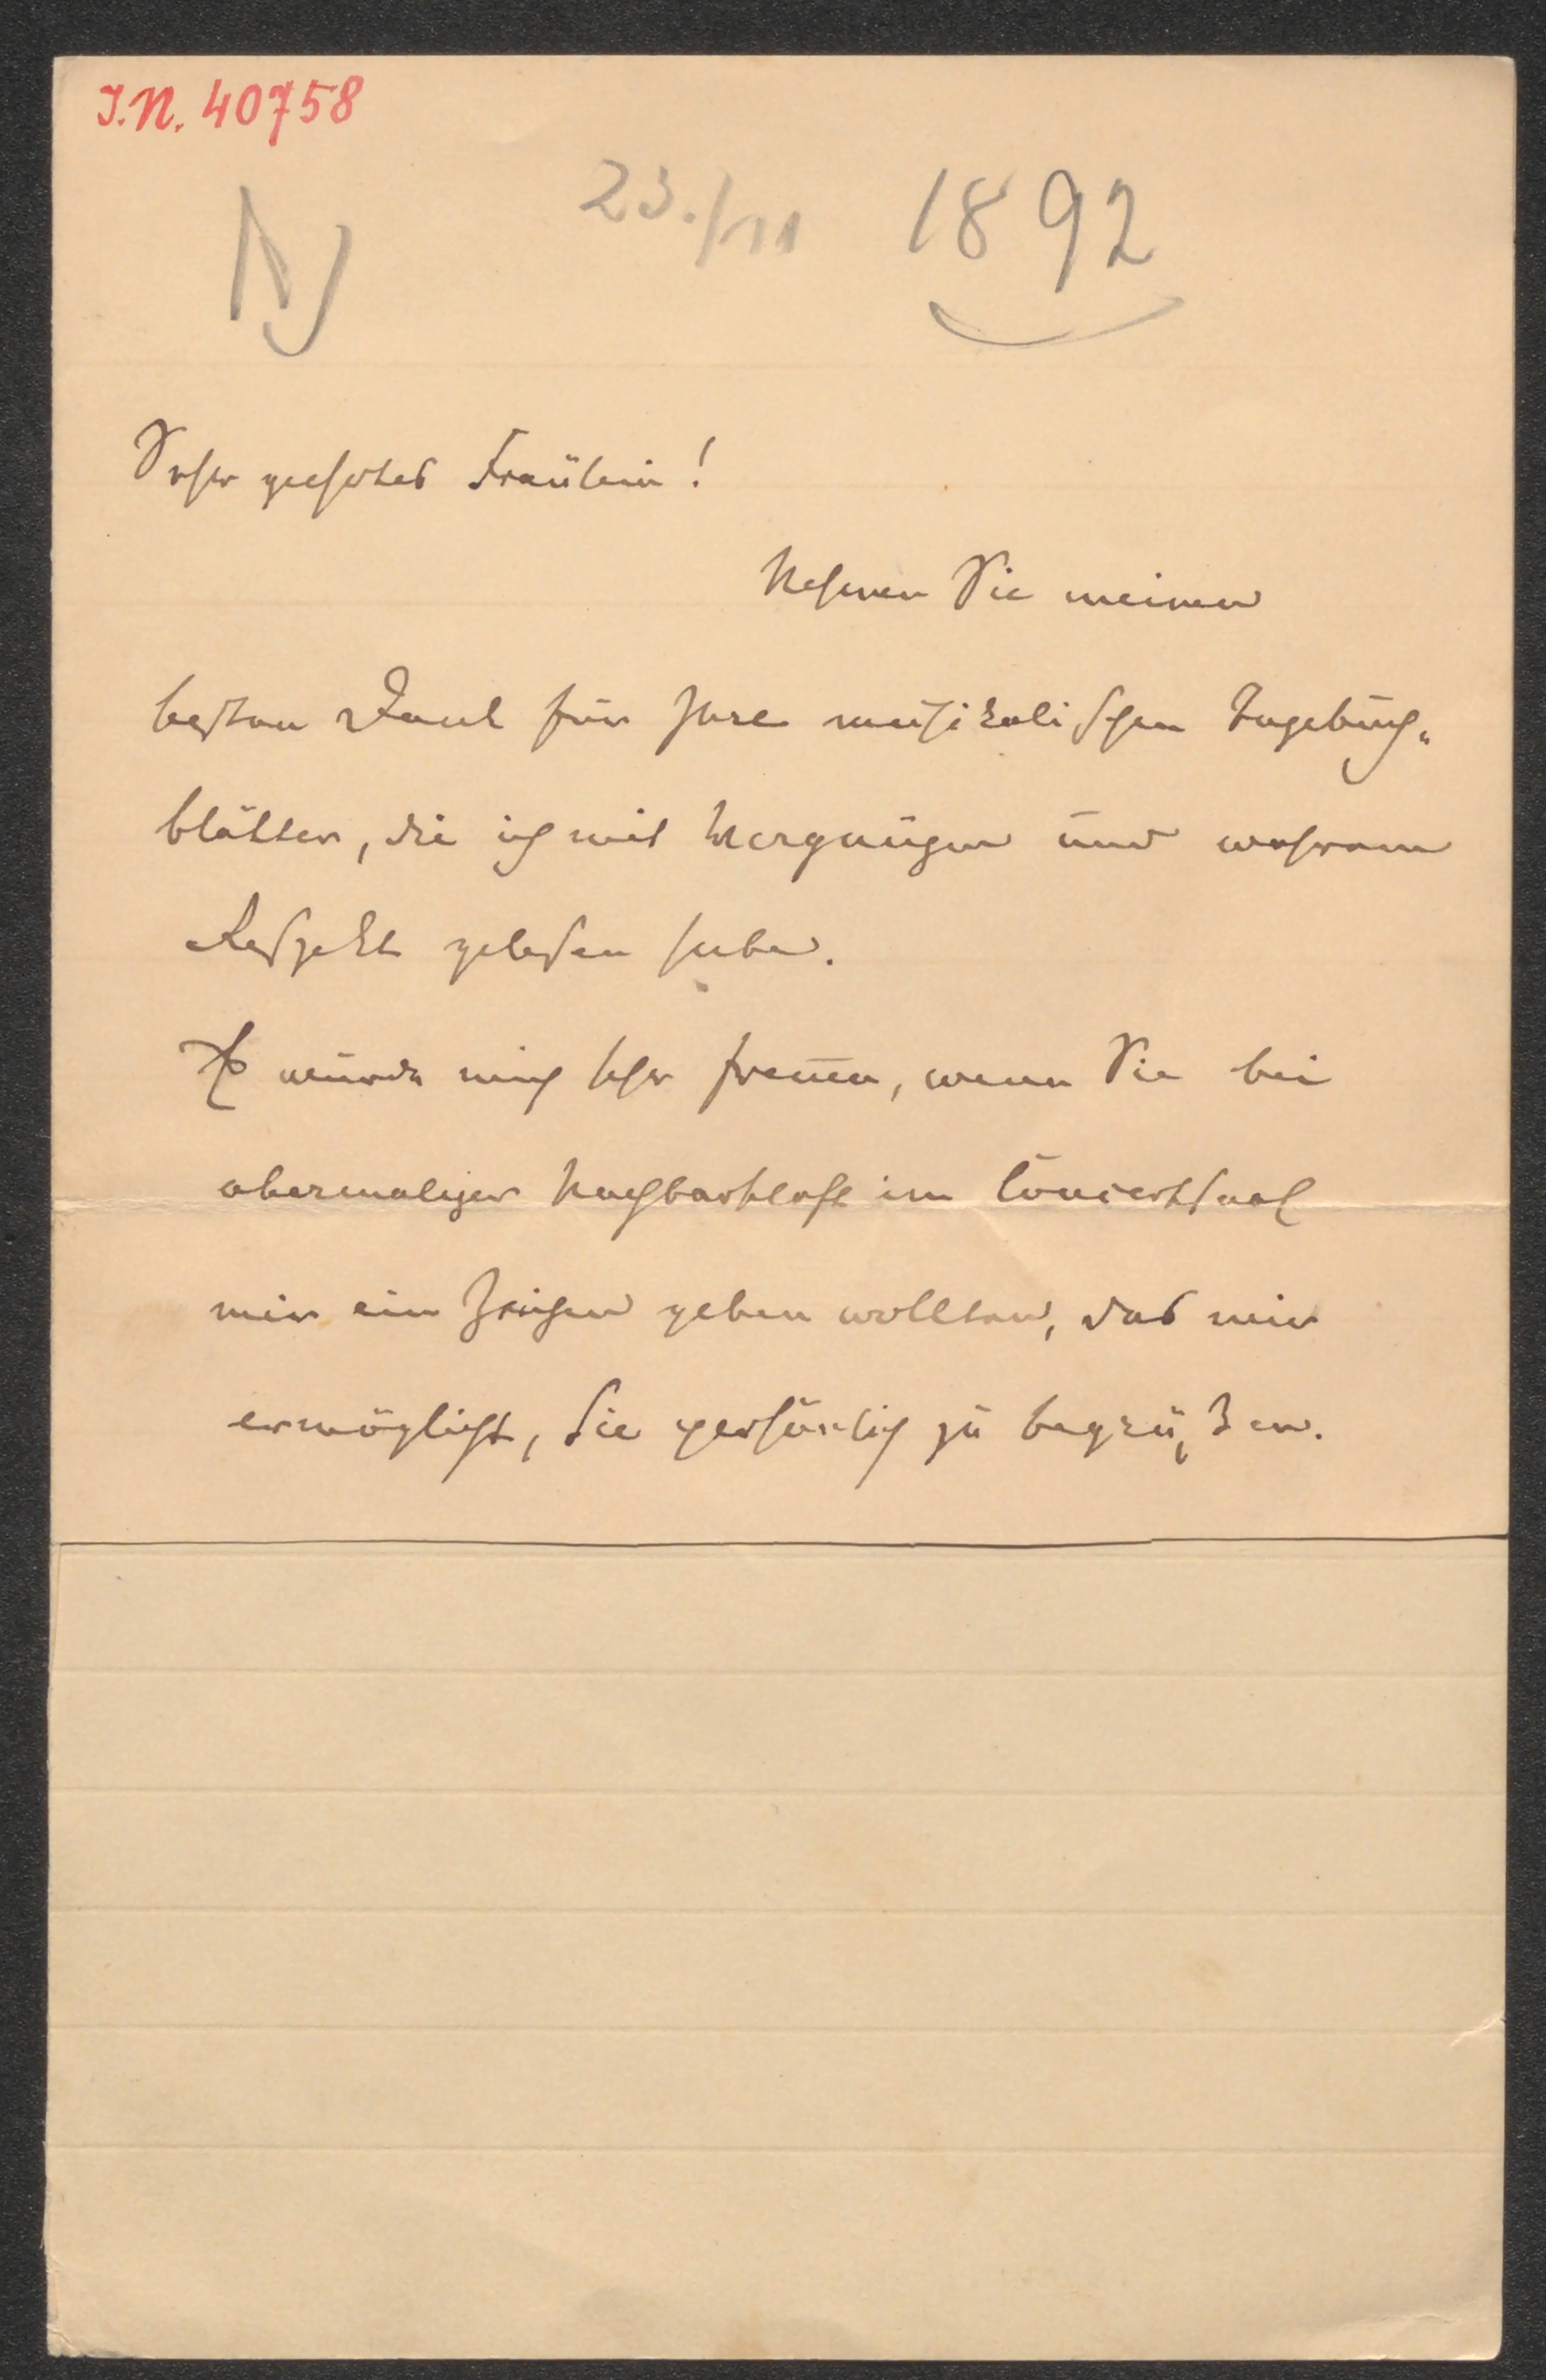 I.N. 40758
23./11 1892
NJ
Sehr geehrtes Fräulein!
Nehmen Sie meinen
besten Dank für Ihre musikalischen Tagebuch-
blätter, die ich mit Vergnügen und wahrem
Respekt gelesen habe.
Es würde mich sehr freuen, wenn Sie bei
abermaliger Nachbarschaft im Concertsaal
mir ein Zeichen geben wollten, das mir
ermöglicht, Sie persönlich zu begrüßen.